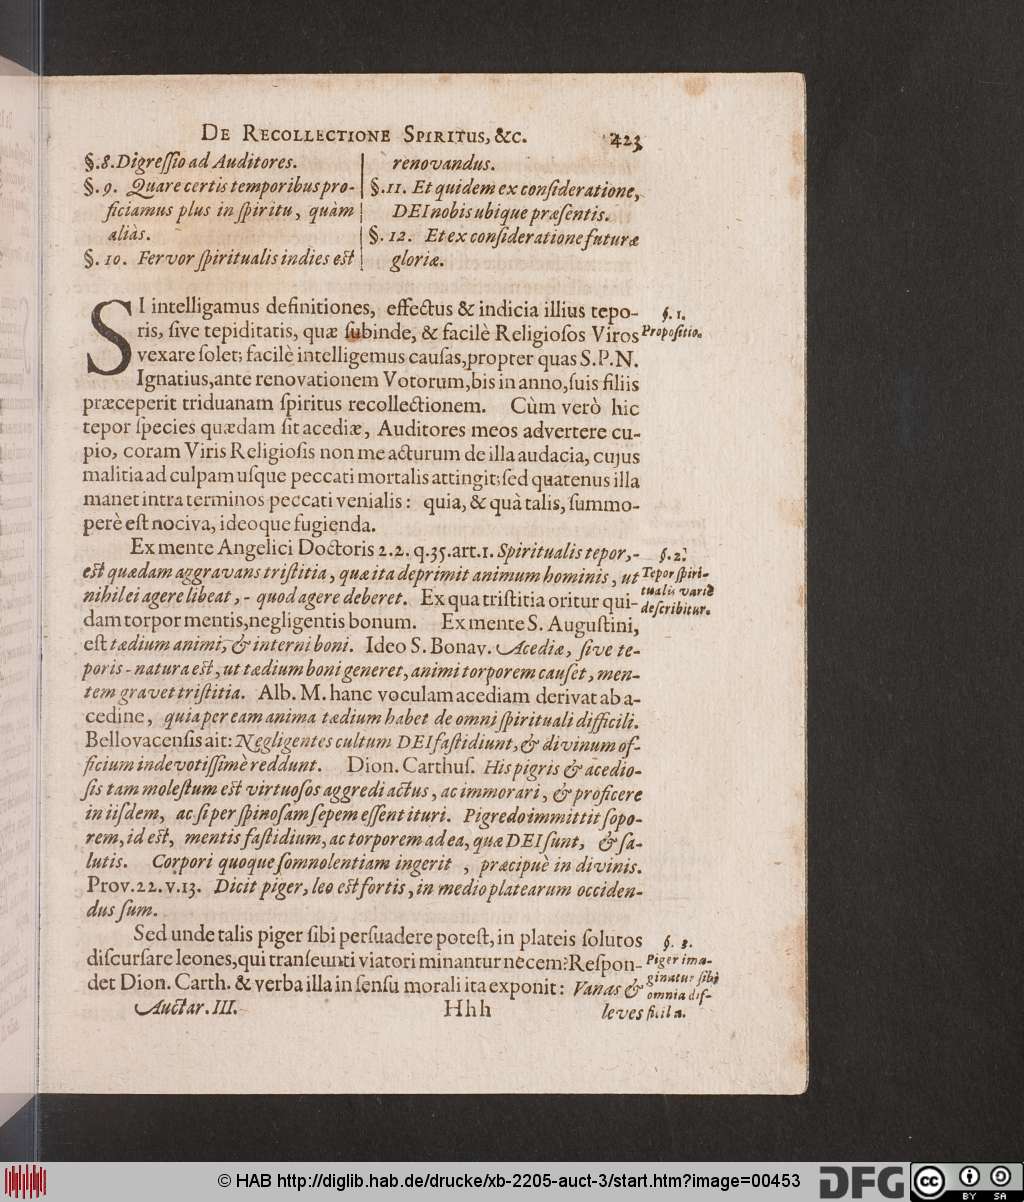 De Recollectione Spiritus, &c. 423
§.8. Digreſſio ad Auditores.
§.9. Quare certis temporibus pro-
ficiamus plus in ſpiritu, quàm
aliàs.
§.10. Fervor ſpiritualis indies eſt
renovandus.
§.11. Et quidem ex conſideratione,
DEI nobis ubique præſentis.
§.12. Et ex conſideratione futuræ
gloriæ.
SI intelligamus definitiones, effectus & indicia illius tepo-
ris, ſive tepiditatis, quæ ſubinde, & facilè Religioſos Viros
vexare ſolet; facilè intelligemus cauſas, propter quas S.P.N.
Ignatius, ante renovationem Votorum, bis in anno, ſuis filiis
præceperit triduanam ſpiritus recollectionem. Cùm verò hic
tepor ſpecies quædam ſit acediæ, Auditores meos advertere cu-
pio, coram Viris Religioſis non me acturum de illa audacia, cujus
malitia ad culpam uſque peccati mortalis attingit; ſed quatenus illa
manet intra terminos peccati venialis: quia, & quà talis, ſummo-
perè eſt nociva, ideoque fugienda.
§.1.
Propoſitio.
Ex mente Angelici Doctoris 2.2. q.35. art.1. Spiritualis tepor,-
eſt quædam aggravans triſtitia, quæ ita deprimit animum hominis, ut
nihil ei agere libeat,- quod agere deberet. Ex qua triſtitia oritur qui-
dam torpor mentis, negligentis bonum. Ex mente S. Auguſtini,
eſt tædium animi, & interni boni. Ideo S. Bonav. Acediæ, ſive te-
poris - natura eſt, ut tædium boni generet, animi torporem cauſet, men-
tem gravet triſtitia. Alb. M. hanc voculam acediam derivat ab a-
cedine, quia per eam anima tædium habet de omni ſpirituali difficili.
Bellovacenſis ait: Negligentes cultum DEI faſtidiunt, & divinum of-
ficium indevotiſſimè reddunt. Dion. Carthuſ. His pigris & acedio-
ſis tam moleſtum eſt virtuoſos aggredi actus, ac immorari, & proficere
in iiſdem, ac ſi per ſpinoſam ſepem eſſent ituri. Pigredo immittit ſopo-
rem, id eſt, mentis faſtidium, ac torporem ad ea, quæ DEI ſunt, & ſa-
lutis. Corpori quoque ſomnolentiam ingerit, præcipuè in divinis.
Prov.22.v.13. Dicit piger, leo eſt fortis, in medio platearum occiden-
dus ſum.
§.2.
Tepor ſpiri-
tualis variè
deſcribitur.
Sed unde talis piger ſibi perſuadere poteſt, in plateis ſolutos
diſcurſare leones, qui tranſeunti viatori minantur necem? Reſpon-
det Dion. Carth. & verba illa in ſenſu morali ita exponit: Vanas &
§.3.
Piger ima-
ginatur ſibi
omnia dif-
ficilia.
Auctar. III. Hhh leves
© HAB http://diglib.hab.de/drucke/xb-2205-auct-3/start.htm?image=00453
DFG cc BY SA